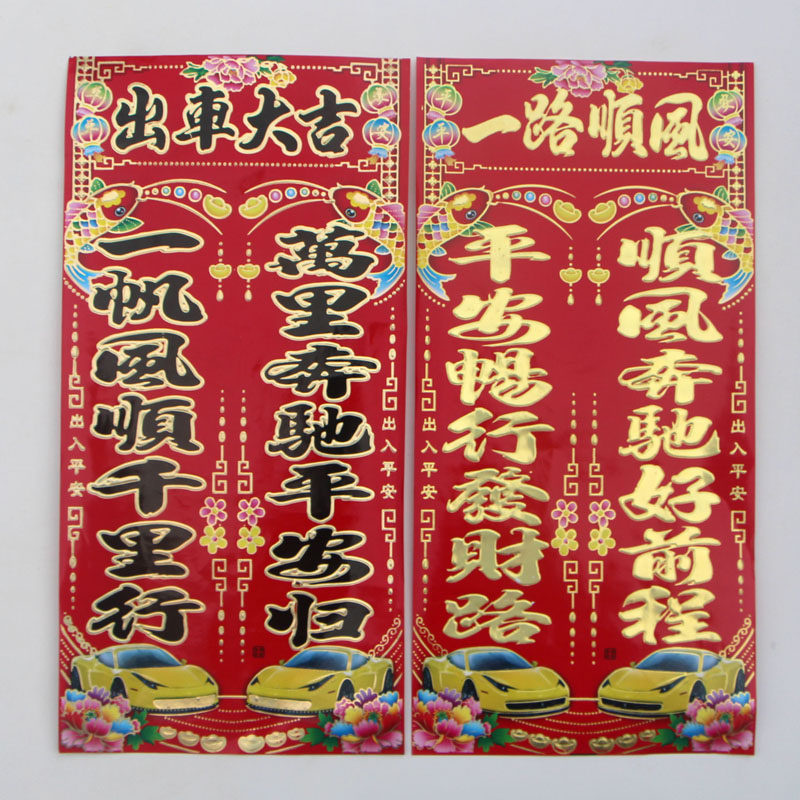 出車大吉
萬里奔馳平安归
一帆風順千里行
出入平安
出入平安
一路順風
順風奔馳好前程
平安暢行發財路
出入平安
出入平安